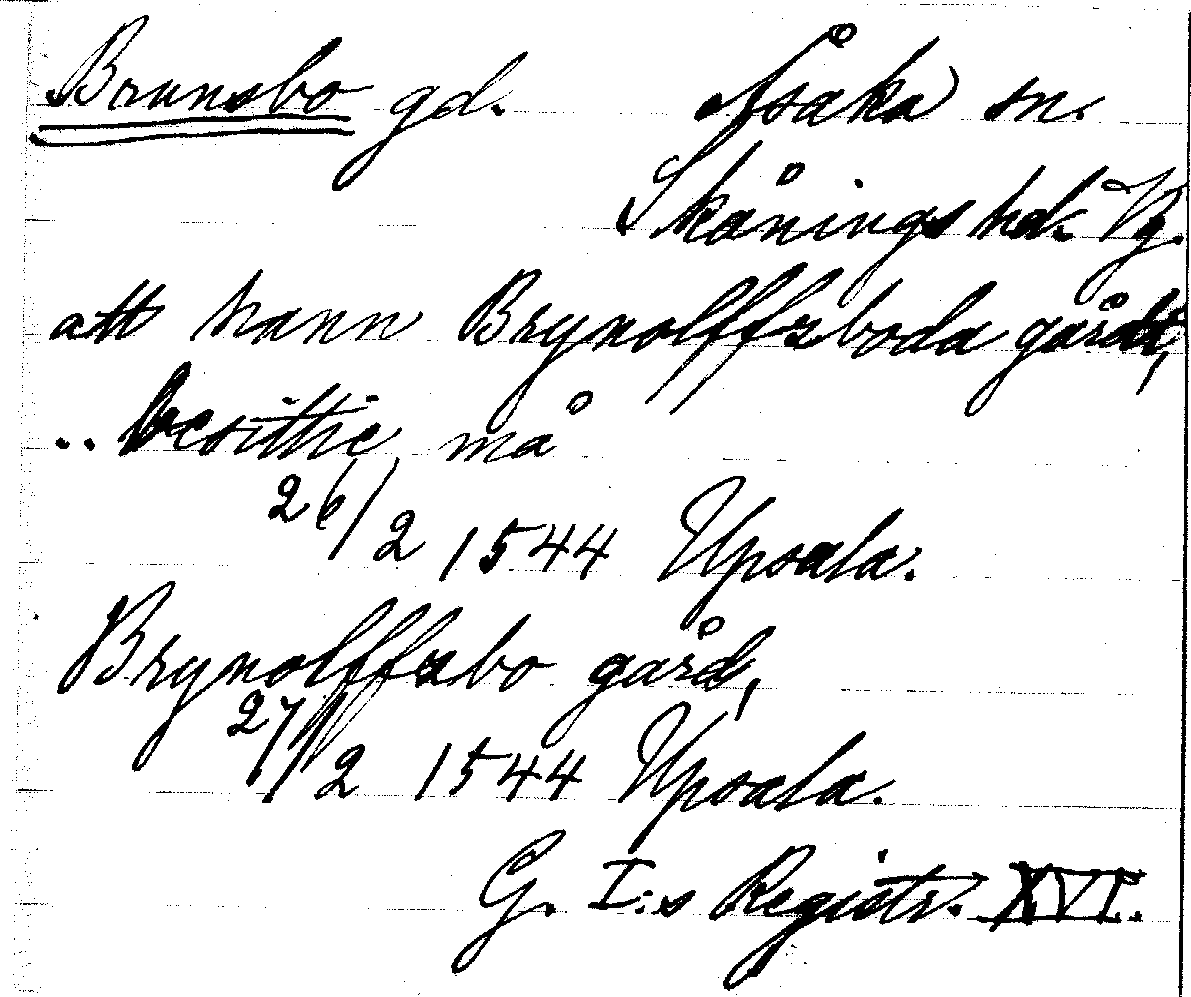 Brunsbo gd. Åsaka sn.
Skånings hd. Vg.
att hann Brynolffzboda gårdt,
.. besittie må
26/2 1544 Upsala.
Brynolffzbo gård,
27/2 1544 Upsala.
G. I:s Registr. XVI.